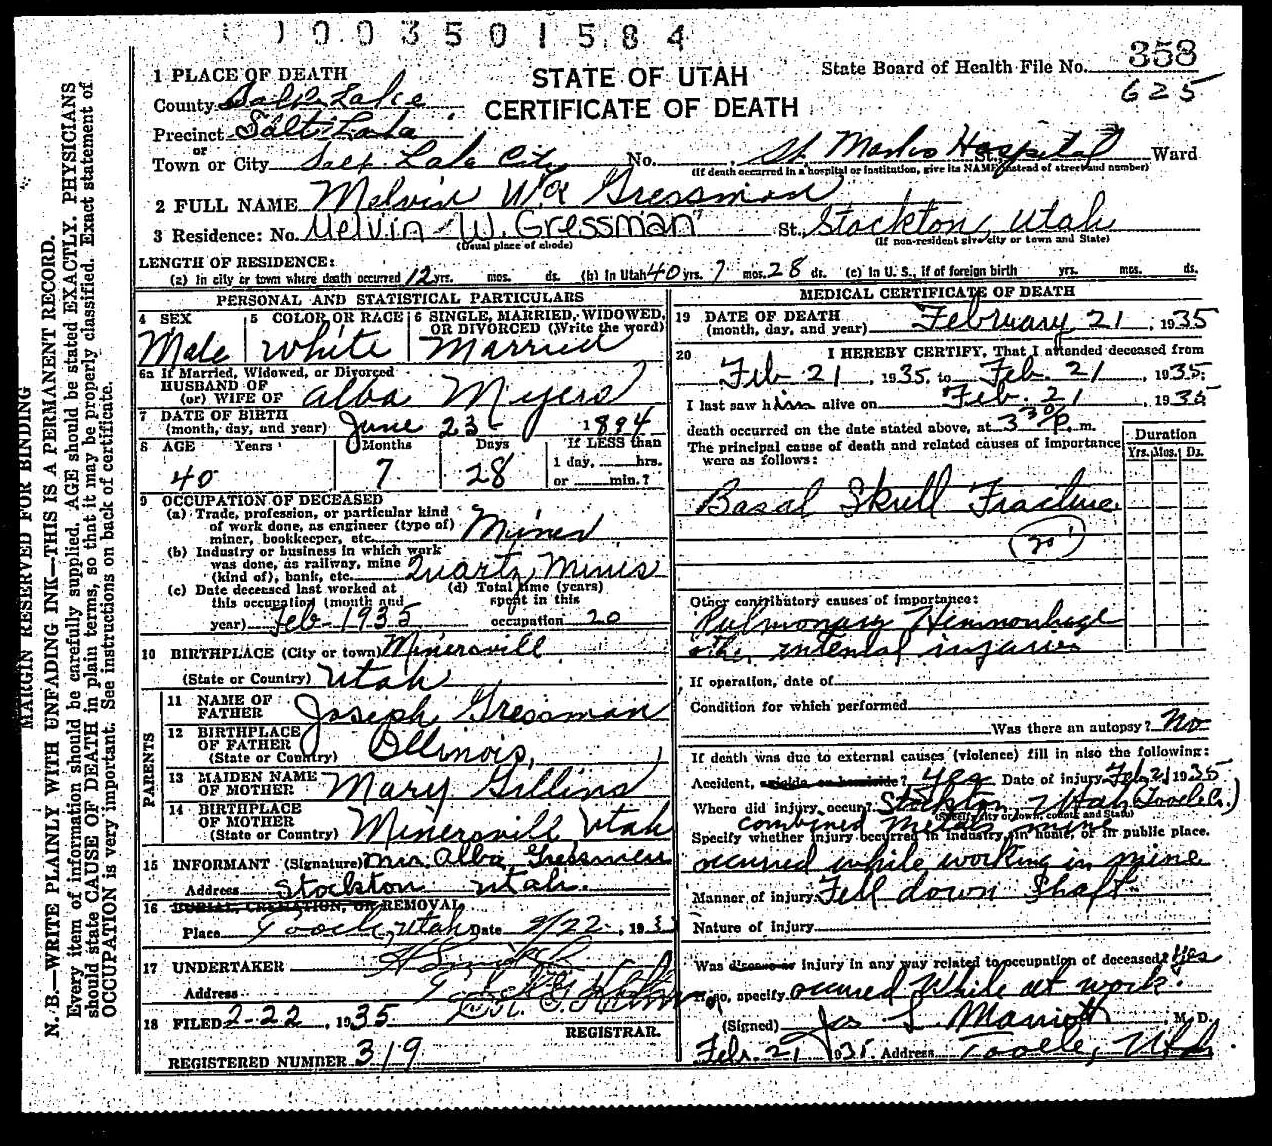 1003501584
STATE OF UTAH
CERTIFICATE OF DEATH
State Board of Health File No. 358
625
1 PLACE OF DEATH
County Salt Lake
Precinct Salt Lake
or
Town or City Salt Lake City No. St. Marks Hospital St. Ward
(If death occurred in a hospital or institution, give its NAME instead of street and number)
2 FULL NAME Melvin Wm Gressman
3 Residence: No. Melvin W. Gressman St. Stockton, Utah
(Usual place of abode) (If non-resident give city or town and State)
LENGTH OF RESIDENCE:
(a) In city or town where death occurred 12 yrs. mos. ds. (b) In Utah 40 yrs. 7 mos. 28 ds. (c) In U. S., if of foreign birth yrs. mos. ds.
PERSONAL AND STATISTICAL PARTICULARS
4 SEX Male
5 COLOR OR RACE White
6 SINGLE, MARRIED, WIDOWED, OR DIVORCED (Write the word) Married
6a If Married, Widowed, or Divorced
HUSBAND OF
(or) WIFE OF Alba Myers
7 DATE OF BIRTH
(month, day, and year) June 23 1894
8 AGE Years Months Days If LESS than
40 7 28 1 day, hrs.
or min.?
9 OCCUPATION OF DECEASED
(a) Trade, profession, or particular kind
of work done, as engineer (type of)
miner, bookkeeper, etc. Miner
(b) Industry or business in which work
was done, as railway, mine
(kind of), bank, etc. Quartz Mines
(c) Date deceased last worked at
this occupation (month and
year) Feb-1935
(d) Total time (years)
spent in this
occupation 20
10 BIRTHPLACE (City or town) Minersvill
(State or Country) Utah
PARENTS
11 NAME OF
FATHER Joseph Gressman
12 BIRTHPLACE
OF FATHER
(State or Country) Illinois,
13 MAIDEN NAME
OF MOTHER Mary Gillins
14 BIRTHPLACE
OF MOTHER
(State or Country) Minersvill Utah
15 INFORMANT (Signature) Mrs. Alba Gressman
Address Stockton Utah.
16 BURIAL, CREMATION, OR REMOVAL
Place Tooele, Utah Date 2/22, 193
17 UNDERTAKER
Address
18 FILED 2-22, 1935
REGISTRAR.
REGISTERED NUMBER 319
MEDICAL CERTIFICATE OF DEATH
19 DATE OF DEATH
(month, day, and year) February 21, 1935
20 I HEREBY CERTIFY, That I attended deceased from
Feb 21, 1935, to Feb. 21, 1935.
I last saw him alive on Feb. 21, 1935
death occurred on the date stated above, at 3 30/P. m.
The principal cause of death and related causes of importance
were as follows:
Duration
Yrs. Mos. Ds.
Basal Skull Fracture
Other contributory causes of importance:
Pulmonary Hemmorhage
other internal injuries
If operation, date of
Condition for which performed
Was there an autopsy? No
If death was due to external causes (violence) fill in also the following:
Accident, suicide or homicide? Yes Date of injury Feb. 21 1935
Where did injury occur? Stockton Utah (Tooele Co.)
(Specify city or town, county and State)
Specify whether injury occurred in industry, in home, or in public place.
occurred while working in mine
Manner of injury Fell down Shaft
Nature of injury
Was disease or injury in any way related to occupation of deceased? Yes
If so, specify occured While at work.
(Signed) Jos L. Marriott M. D.
Feb. 21 1935 Address Tooele, Utah.
MARGIN RESERVED FOR BINDING
N. B.—WRITE PLAINLY WITH UNFADING INK—THIS IS A PERMANENT RECORD.
Every item of information should be carefully supplied. AGE should be stated EXACTLY. PHYSICIANS
should state CAUSE OF DEATH in plain terms, so that it may be properly classified. Exact statement of
OCCUPATION is very important. See instructions on back of certificate.